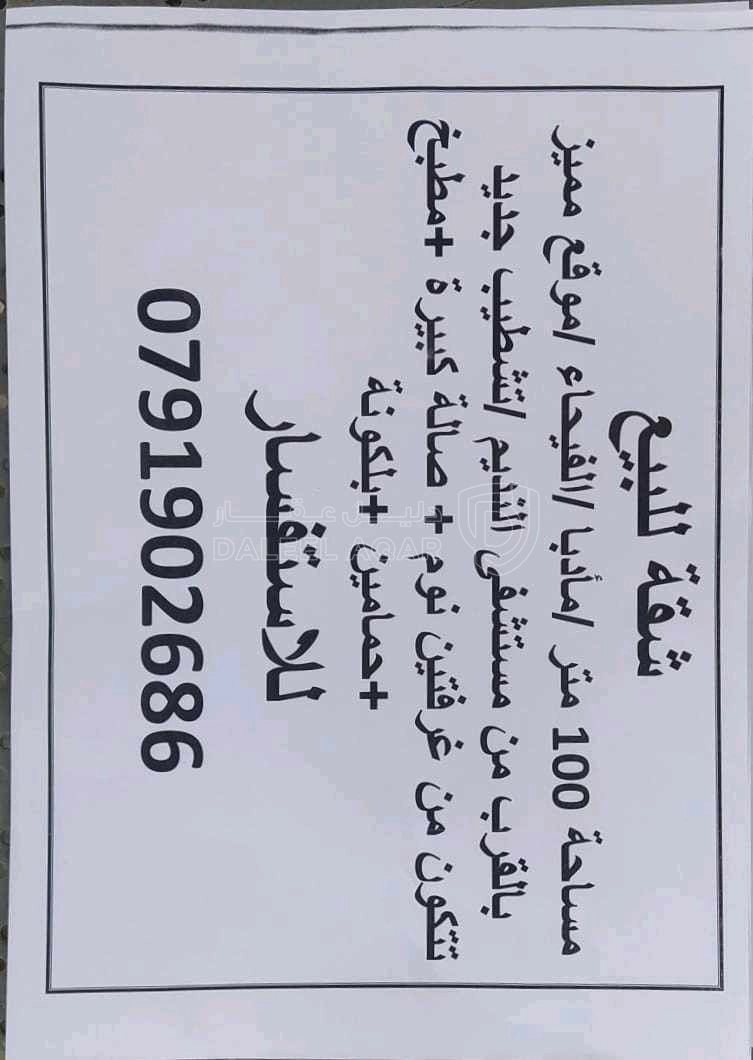 شقة للبيع
مساحة 100 متر /مأدبا /الفيحاء /موقع مميز
بالقرب من مستشفى النديم /تشطيب جديد
تتكون من غرفتين نوم + صالة كبيرة +مطبخ
+حمامين +بلكونة
للاستفسار
0791902686
دليل عقار
DALEEL AQAR